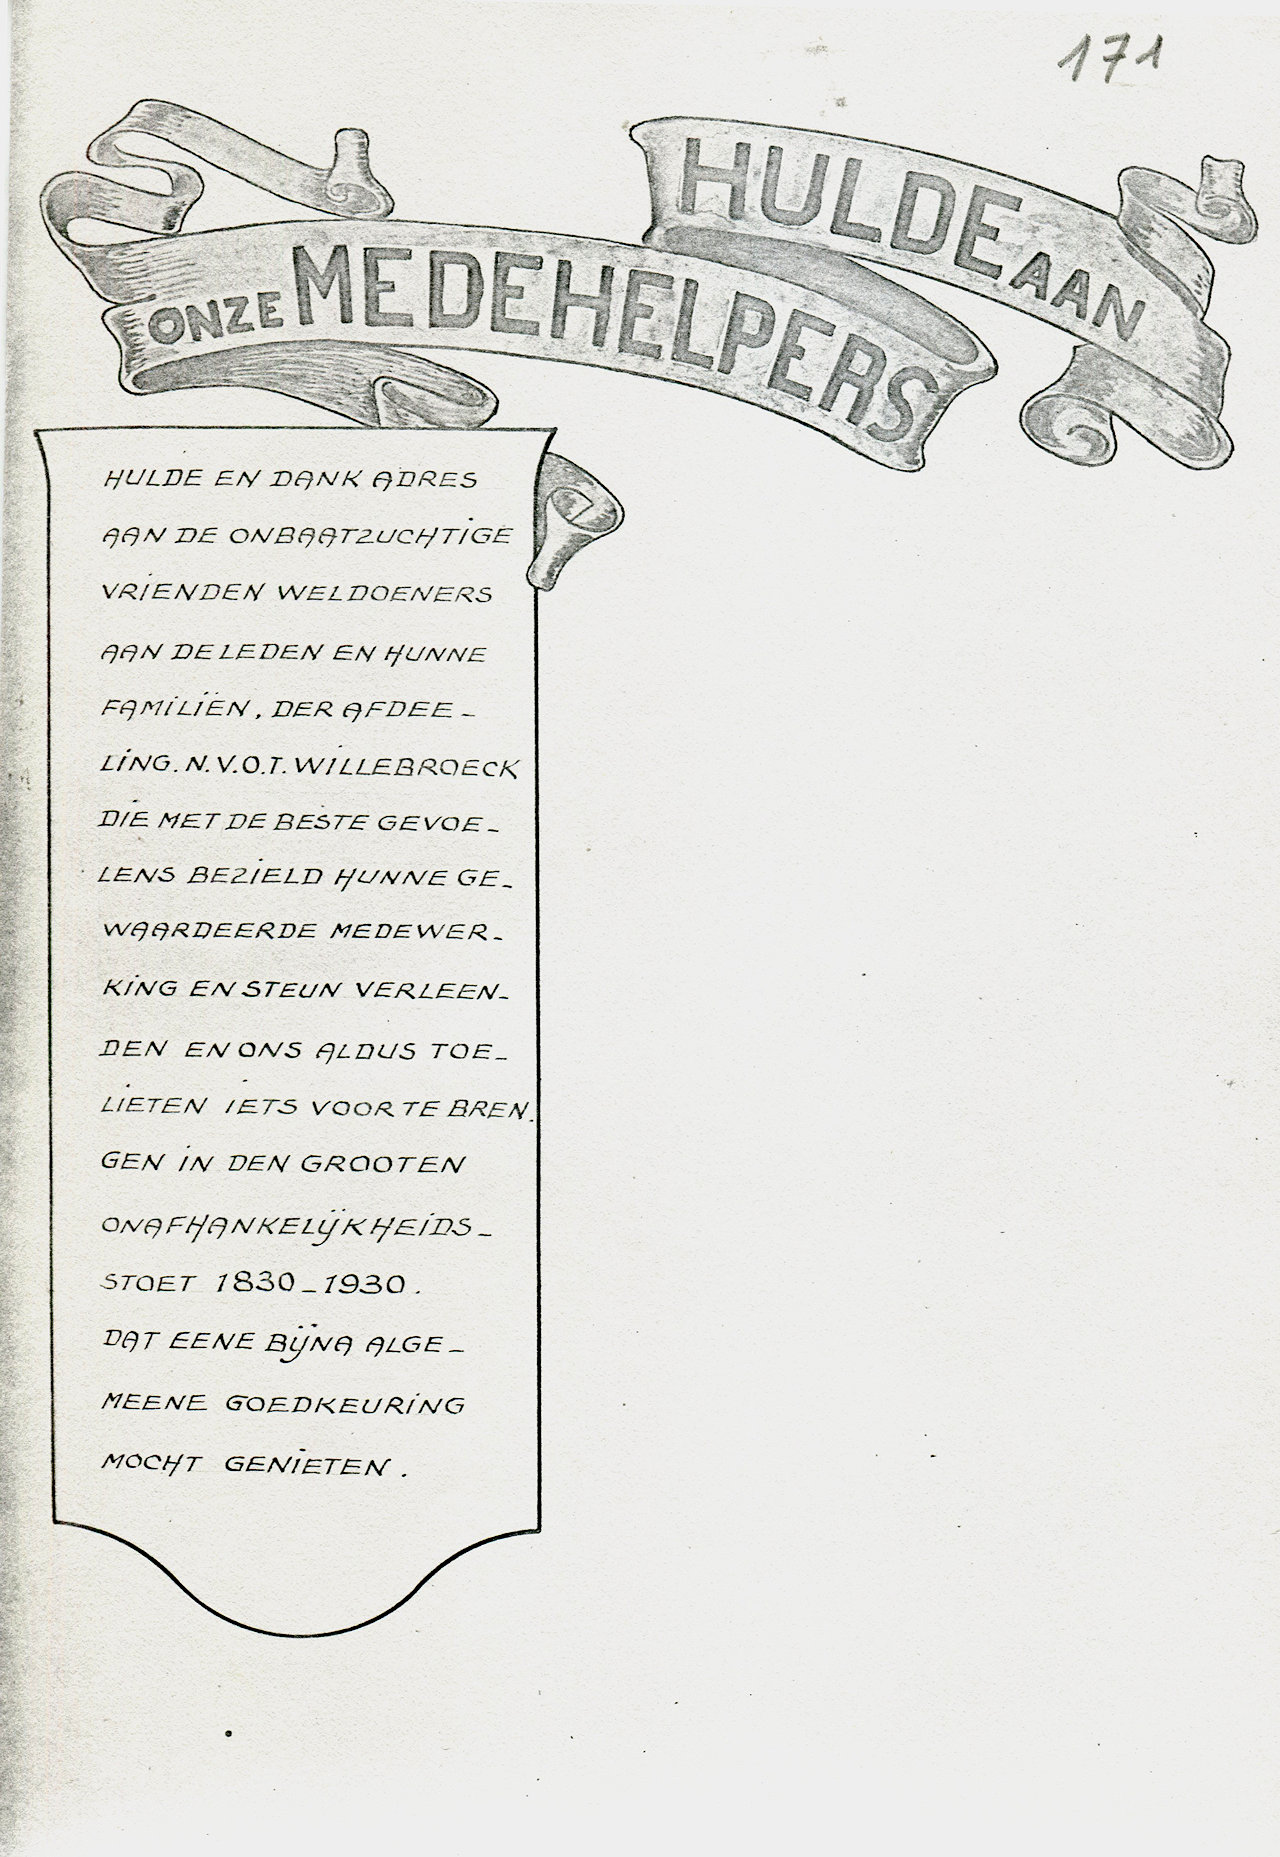 171
HULDE AAN
ONZE MEDEHELPERS
HULDE EN DANK ADRES
AAN DE ONBAATZUCHTIGE
VRIENDEN WELDOENERS
AAN DE LEDEN EN HUNNE
FAMILIËN, DER AFDEE-
LING. N.V.O.T. WILLEBROECK
DIE MET DE BESTE GEVOE-
LENS BEZIELD HUNNE GE-
WAARDEERDE MEDEWER-
KING EN STEUN VERLEEN-
DEN EN ONS ALDUS TOE-
LIETEN IETS VOOR TE BREN.
GEN IN DEN GROOTEN
ONAFHANKELIJKHEIDS-
STOET 1830-1930.
DAT EENE BIJNA ALGE-
MEENE GOEDKEURING
MOCHT GENIETEN.